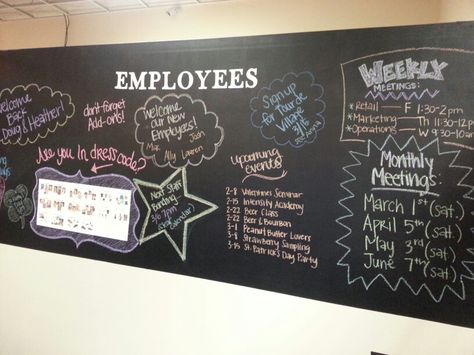 EMPLOYEES
Welcome
Back
Doug & Heather!
don't forget
Add-ons!
Welcome
our New
Employees!
Max Josh
Ally Lauren
Sign up
for Tour de
Village
3/15
Are you in dress code?
Next Staff
Bonding
3/6 7pm
upcoming
events
2-8 Valentines Seminar
2-15 Intensity Academy
2-22 Beer Class
2-22 Beer & Bourbon
3-1 Peanut Butter Lovers
3-8 Strawberry Sampling
3-15 St. Patrick's Day Party
Weekly
MEETINGS:
*Retail F 1:30-2pm
*Marketing Th 11:30-12p
*Operations W 9:30-10a
Monthly
Meetings:
March 1st (sat.)
April 5th (sat.)
May 3rd (sat)
June 7th (sat.)